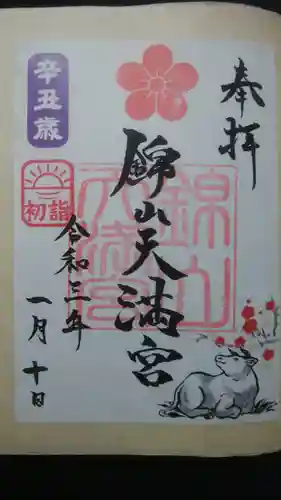 奉拝
錦山天満宮
錦山
天満宮
辛丑歳
初詣
令和三年
一月十日